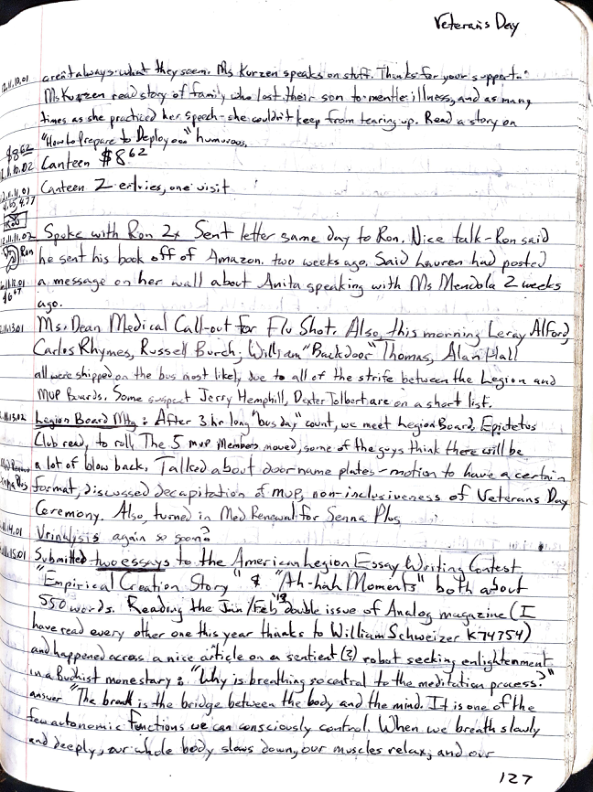 Veterans Day
aren't always what they seem. Ms. Kurzen speaks on stuff. Thanks for your support."
Ms Kurzen read story of family who lost their son to mentle illness, and as many
times as she practiced her speech - she couldn't keep from tearing up. Read a story on
"How to Prepare to Deploy" humorous.
Canteen $8.62
Canteen 2 entries, one visit
Spoke with Ron 2x Sent letter same day to Ron. Nice talk - Ron said
he sent his book off of Amazon. two weeks ago. Said Lauren had posted
a message on her wall about Anita speaking with Ms Mendola 2 weeks
ago.
Ms. Dean Medical Call-out for Flu Shot. Also, this morning Leray Alford,
Carlos Rhymes, Russell Burch, William "Backdoor" Thomas, Alan Hall
all were shipped on the bus most likely due to all of the strife between the Legion and
MVP Boards. Some suspect Jerry Hemphill, Dexter Tolbert are on a short list.
Legion Board Mtg: After 3 hr long "bus day" count, we meet Legion Board, Epictetus
Club ready to roll. The 5 MVP Members moved, some of the guys think there will be
a lot of blow back. Talked about door name plates - motion to have a certain
format, discussed decapitation of MVP, non-inclusiveness of Veterans Day
Ceremony. Also, turned in Med Renewal for Senna Plus
Urinalysis again so soon?
Submitted two essays to the American Legion Essay Writing Contest
"Empirical Creation Story" & "Ah-hah Moments" both about
550 words. Reading the Jan/Feb '13 double issue of Analog magazine (I
have read every other one this year thanks to William Schweizer K74754)
and happened across a nice article on a sentient (?) robot seeking enlightenment
in a Budhist monestary: "Why is breathing so control to the meditation process?"
answer "The breath is the bridge between the body and the mind. It is one of the
few autonomic functions we can consciously control. When we breath slowly
and deeply, our whole body slows down, our muscles relax, and our
127